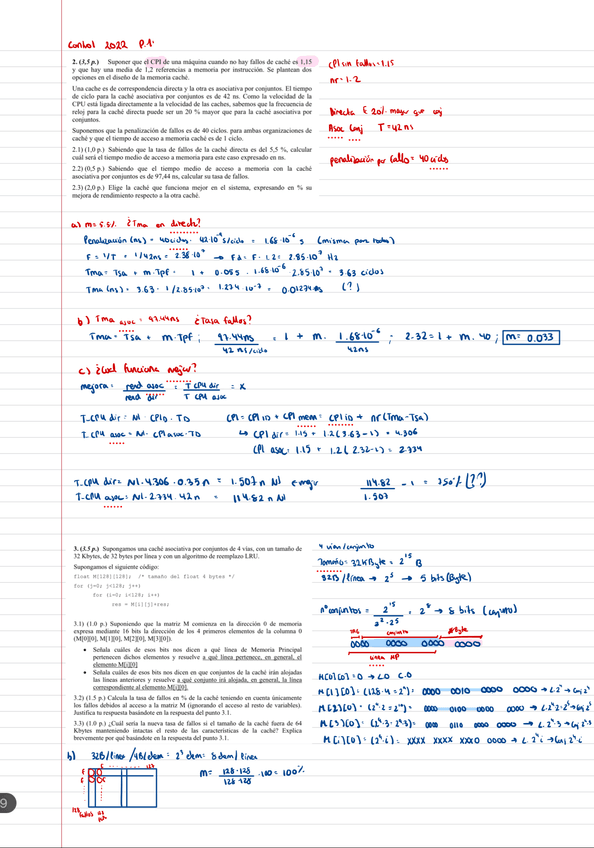 Control 2022 P.1.
2. (3,5 p.) Suponer que el CPI de una máquina cuando no hay fallos de caché es 1,15
y que hay una media de 1,2 referencias a memoria por instrucción. Se plantean dos
opciones en el diseño de la memoria caché.
Una cache es de correspondencia directa y la otra es asociativa por conjuntos. El tiempo
de ciclo para la caché asociativa por conjuntos es de 42 ns. Como la velocidad de la
CPU está ligada directamente a la velocidad de las caches, sabemos que la frecuencia de
reloj para la caché directa puede ser un 20 % mayor que para la caché asociativa por
conjuntos.
Suponemos que la penalización de fallos es de 40 ciclos. para ambas organizaciones de
caché y que el tiempo de acceso a memoria caché es de 1 ciclo.
2.1) (1,0 p.) Sabiendo que la tasa de fallos de la caché directa es del 5,5 %, calcular
cuál será el tiempo medio de acceso a memoria para este caso expresado en ns.
2.2) (0,5 p.) Sabiendo que el tiempo medio de acceso a memoria con la caché
asociativa por conjuntos es de 97,44 ns, calcular su tasa de fallos.
2.3) (2,0 p.) Elige la caché que funciona mejor en el sistema, expresando en % su
mejora de rendimiento respecto a la otra caché.
CPI sin fallos = 1.15
nr = 1.2
Directa F 20% mayor que conj
Asoc Conj T = 42 ns
penalización por fallo = 40 ciclos
a) m = 5.5% ¿Tma en directa?
Penalización (ns) = 40 ciclos · 42·10⁻⁹ s/ciclo = 1.68·10⁻⁶ s (misma para todos)
F = 1/T = 1/42ns = 2.38·10⁷ → Fd = F · 1.2 = 2.85·10⁷ Hz
Tma = Tsa + m·Tpf = 1 + 0.055 · 1.68·10⁻⁶ · 2.85·10⁷ = 3.63 ciclos
Tma (ns) = 3.63 · 1/2.85·10⁷ = 1.274·10⁻⁷ = (?)
b) Tma asoc = 97.44ns ¿Tasa fallos?
Tma = Tsa + m·Tpf ; 97.44ns / 42 ns/ciclo = 1 + m · 1.68·10⁻⁶ / 42ns ; 2.32 = 1 + m · 40 ; m = 0.033
c) ¿Cual funciona mejor?
mejora = rend asoc / rend dir = T CPU dir / T CPU asoc = x
T_CPU dir = NI · CPID · TD CPI = CPI ID + CPI mem = CPI ID + nr (Tma - Tsa)
T_CPU asoc = NI · CPI asoc · TD ↳ CPI dir = 1.15 + 1.2 (3.63 - 1) = 4.306
CPI asoc = 1.15 + 1.2 (2.32 - 1) = 2.734
T_CPU dir = NI · 4.306 · 0.35 n = 1.507 n NI
T_CPU asoc = NI · 2.734 · 42 n = 114.82 n NI
114.82 / 1.507 - 1 = (??)
3. (3.5 p.) Supongamos una caché asociativa por conjuntos de 4 vías, con un tamaño de
32 Kbytes, de 32 bytes por línea y con un algoritmo de reemplazo LRU.
Supongamos el siguiente código:
float M[128][128]; /* tamaño del float 4 bytes */
for (j=0; j<128; j++)
for (i=0; i<128; i++)
res = M[i][j]+res;
3.1) (1.0 p.) Suponiendo que la matriz M comienza en la dirección 0 de memoria
expresa mediante 16 bits la dirección de los 4 primeros elementos de la columna 0
(M[0][0], M[1][0], M[2][0], M[3][0]).
• Señala cuáles de esos bits nos dicen a qué línea de Memoria Principal
pertenecen dichos elementos y resuelve a qué línea pertenece, en general, el
elemento M[i][0]
• Señala cuáles de esos bits nos dicen en que conjuntos de la caché irán alojadas
las líneas anteriores y resuelve a qué conjunto irá alojada, en general, la línea
correspondiente al elemento M[i][0].
3.2) (1.5 p.) Calcula la tasa de fallos en % de la caché teniendo en cuenta únicamente
los fallos debidos al acceso a la matriz M (ignorando el acceso al resto de variables).
Justifica tu respuesta basándote en la respuesta del punto 3.1.
3.3) (1.0 p.) ¿Cuál sería la nueva tasa de fallos si el tamaño de la caché fuera de 64
Kbytes manteniendo intactas el resto de las características de la caché? Explica
brevemente por qué basándote en la respuesta del punto 3.1.
4 vías/conjunto
Tamaño = 32KByte = 2¹⁵ B
32B/línea → 2⁵ → 5 bits (Byte)
nº conjuntos = 2¹⁵ / 2²·2⁵ = 2⁸ → 8 bits (conjunto)
TAG conjunto Byte
0000 0000 0000 0000
línea MP
M[0][0] = 0 → L0 C.0
M[1][0] = (128·4 = 2⁹) = 0000 0010 0000 0000 → L.2⁴ → Conj 2⁴
M[2][0] = 0000 0100 0000 0000
M[3][0] = 0000 0110 0000 0000
M[i][0] = (2⁹·i) = XXXX XXXX XXX0 0000 → L 2⁴·i → Conj 2⁴·i
b) 32B/línea /4B/elem = 2³ elem = 8 elem/línea
m = 128·128 / 128·128 · 100 = 100%
128
128
fallos
9